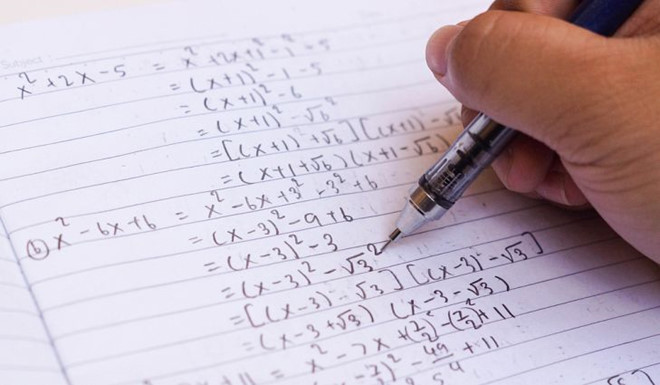 Subject
x² + 2x - 5 = x² + 2x + 1² - 1² - 5
= (x+1)² - 1 - 5
= (x+1)² - 6
= (x+1)² - √6²
= [(x+1) + √6] [(x+1) - √
= (x+1+√6) (x+1-√6)
(b) x² - 6x + 6 = x² - 6x + 3² - 3² + 6
= (x-3)² - 9 + 6
= (x-3)² - 3
= (x-3)² - √3²
= [(x-3) - √3] [(x-3) - √3]
= (x-3+√3) (x-3-√3)
= x² - 7x + (7/2)² - (7/2)² + 11
)² - 49/4 + 11